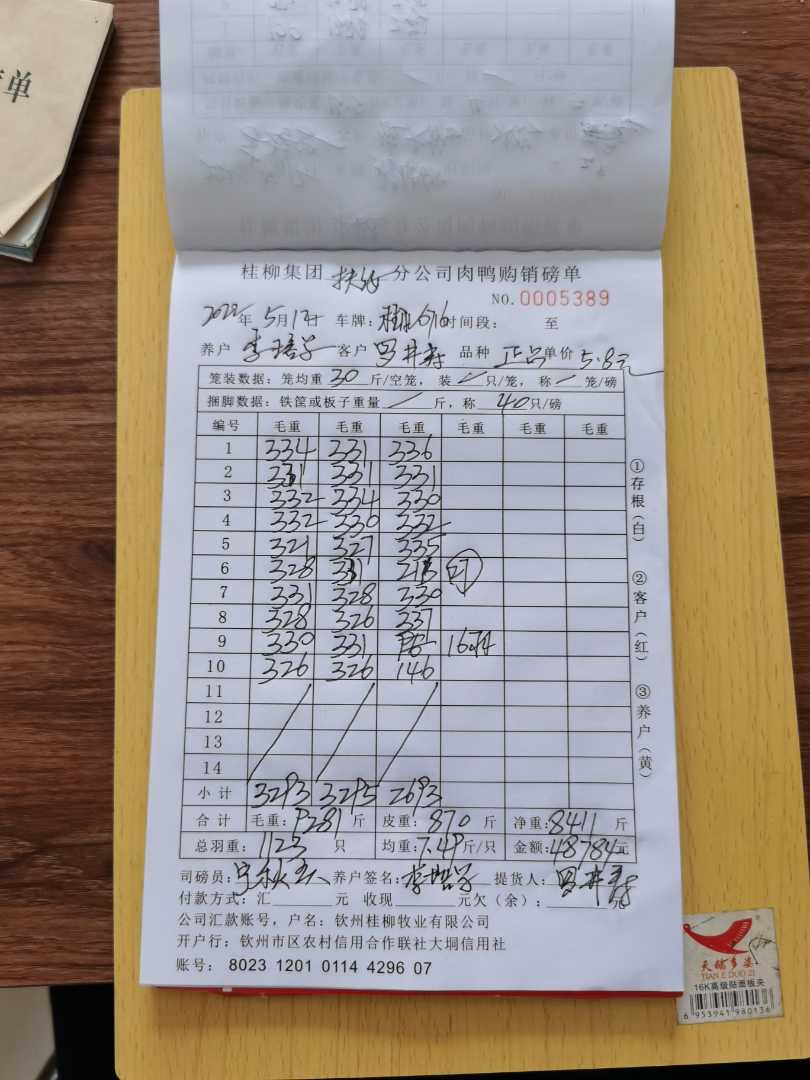 单
桂柳集团 扶绥 分公司肉鸭购销磅单
NO. 0005389
2022年 5月17日 车牌: 时间段: 至
养户 李培学 客户 罗井寿 品种 正品 单价 5.8元
笼装数据: 笼均重 30 斤/空笼, 装 / 只/笼, 称 / 笼/磅
捆脚数据: 铁筐或板子重量 / 斤, 称 40 只/磅
编号 毛重 毛重 毛重 毛重 毛重 毛重
1 334 331 336
2 331 331 331
3 332 334 330
4 332 330 332
5 321 327 335
6 328 331 213
7 331 328 330
8 328 326 337
9 330 331
10 326 326 146
11
12
13
14
小计 3293 3295 2693
合计 毛重: 9281 斤 皮重: 870 斤 净重: 8411 斤
总羽重: 1123 只 均重: 7.49 斤/只 金额: 48784 元
司磅员: 养户签名: 李培学 提货人: 罗井寿
付款方式: 汇 元 收现 元欠(余): 元
公司汇款账号, 户名: 钦州桂柳牧业有限公司
开户行: 钦州市区农村信用合作联社大垌信用社
账号: 8023 1201 0114 4296 07
①存根(白)
②客户(红)
③养户(黄)
天骄多姿
TIAN E DUO ZI
16K高级贴面板夹
6 953941 980136